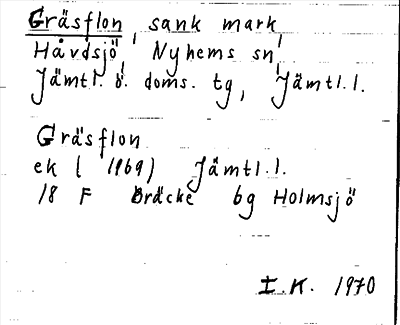 Gräsflon, sank mark
Håvdsjö, Nyhems sn,
Jämtl. ö. doms. tg, Jämtl. l.
Gräsflon
ek (1969) Jämtl. l.
18 F Bräcke bg Holmsjö
I.K. 1970